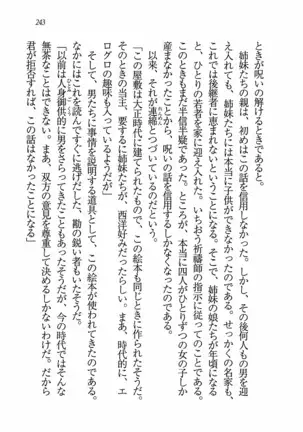 243
ときが呪いの解けるときであると。
姉妹たちの親は、初めはこの話を信用しなかった。しかし、その後何人もの男を迎
え入れても、姉妹たちには本当に子供ができなかったのである。せっかくの名家も、
これでは後継者に恵まれないということになる。そこで、姉妹の娘たちが年頃になる
と、ひとりの若者を家に迎え入れた。いちおう祈禱師の指示に従ってのことである。
このときもまだ半信半疑であった。ところが、本当に四人がひとりずつの女の子しか
産まなかったことから、呪いの話を信用するしかなくなったのだという。
以来、それが連綿とつづいているのだという。
「この屋敷は大正時代に建てられたもので、この絵本も同じときに作られたそうだ。
そのときの当主、要するに姉妹たちが、西洋好みだったらしい。まあ、時代的に、エ
ログロも入っているようだが」
そして、男たちに事情を説明する道具として、この絵本が使われてきたのである。
なかにはこれを読んですぐに逃げだした、勘の鋭い者がいたそうだ。
「以前は人身御供的に男をさらってきたこともあったそうだが、今の時代ではそんな
無茶なことはできない。まあ、双方の意見を尊重して決めるしかないわけだ。だから
君が拒否すれば、この話はなかったことになる」